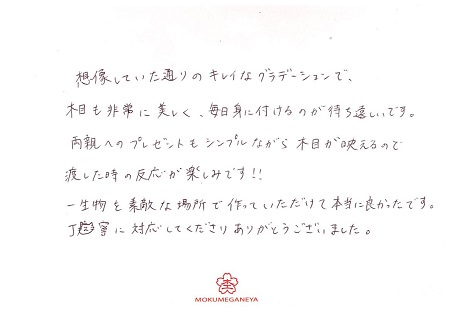 想像していた通りのキレイなグラデーションで、
木目も非常に美しく、毎日身に付けるのが待ち遠しいです。
両親へのプレゼントもシンプルながら木目が映えるので
渡した時の反応が楽しみです!!
一生物を素敵な場所で作っていただけて本当に良かったです。
丁寧に対応してくださりありがとうございました。
MOKUMEGANEYA